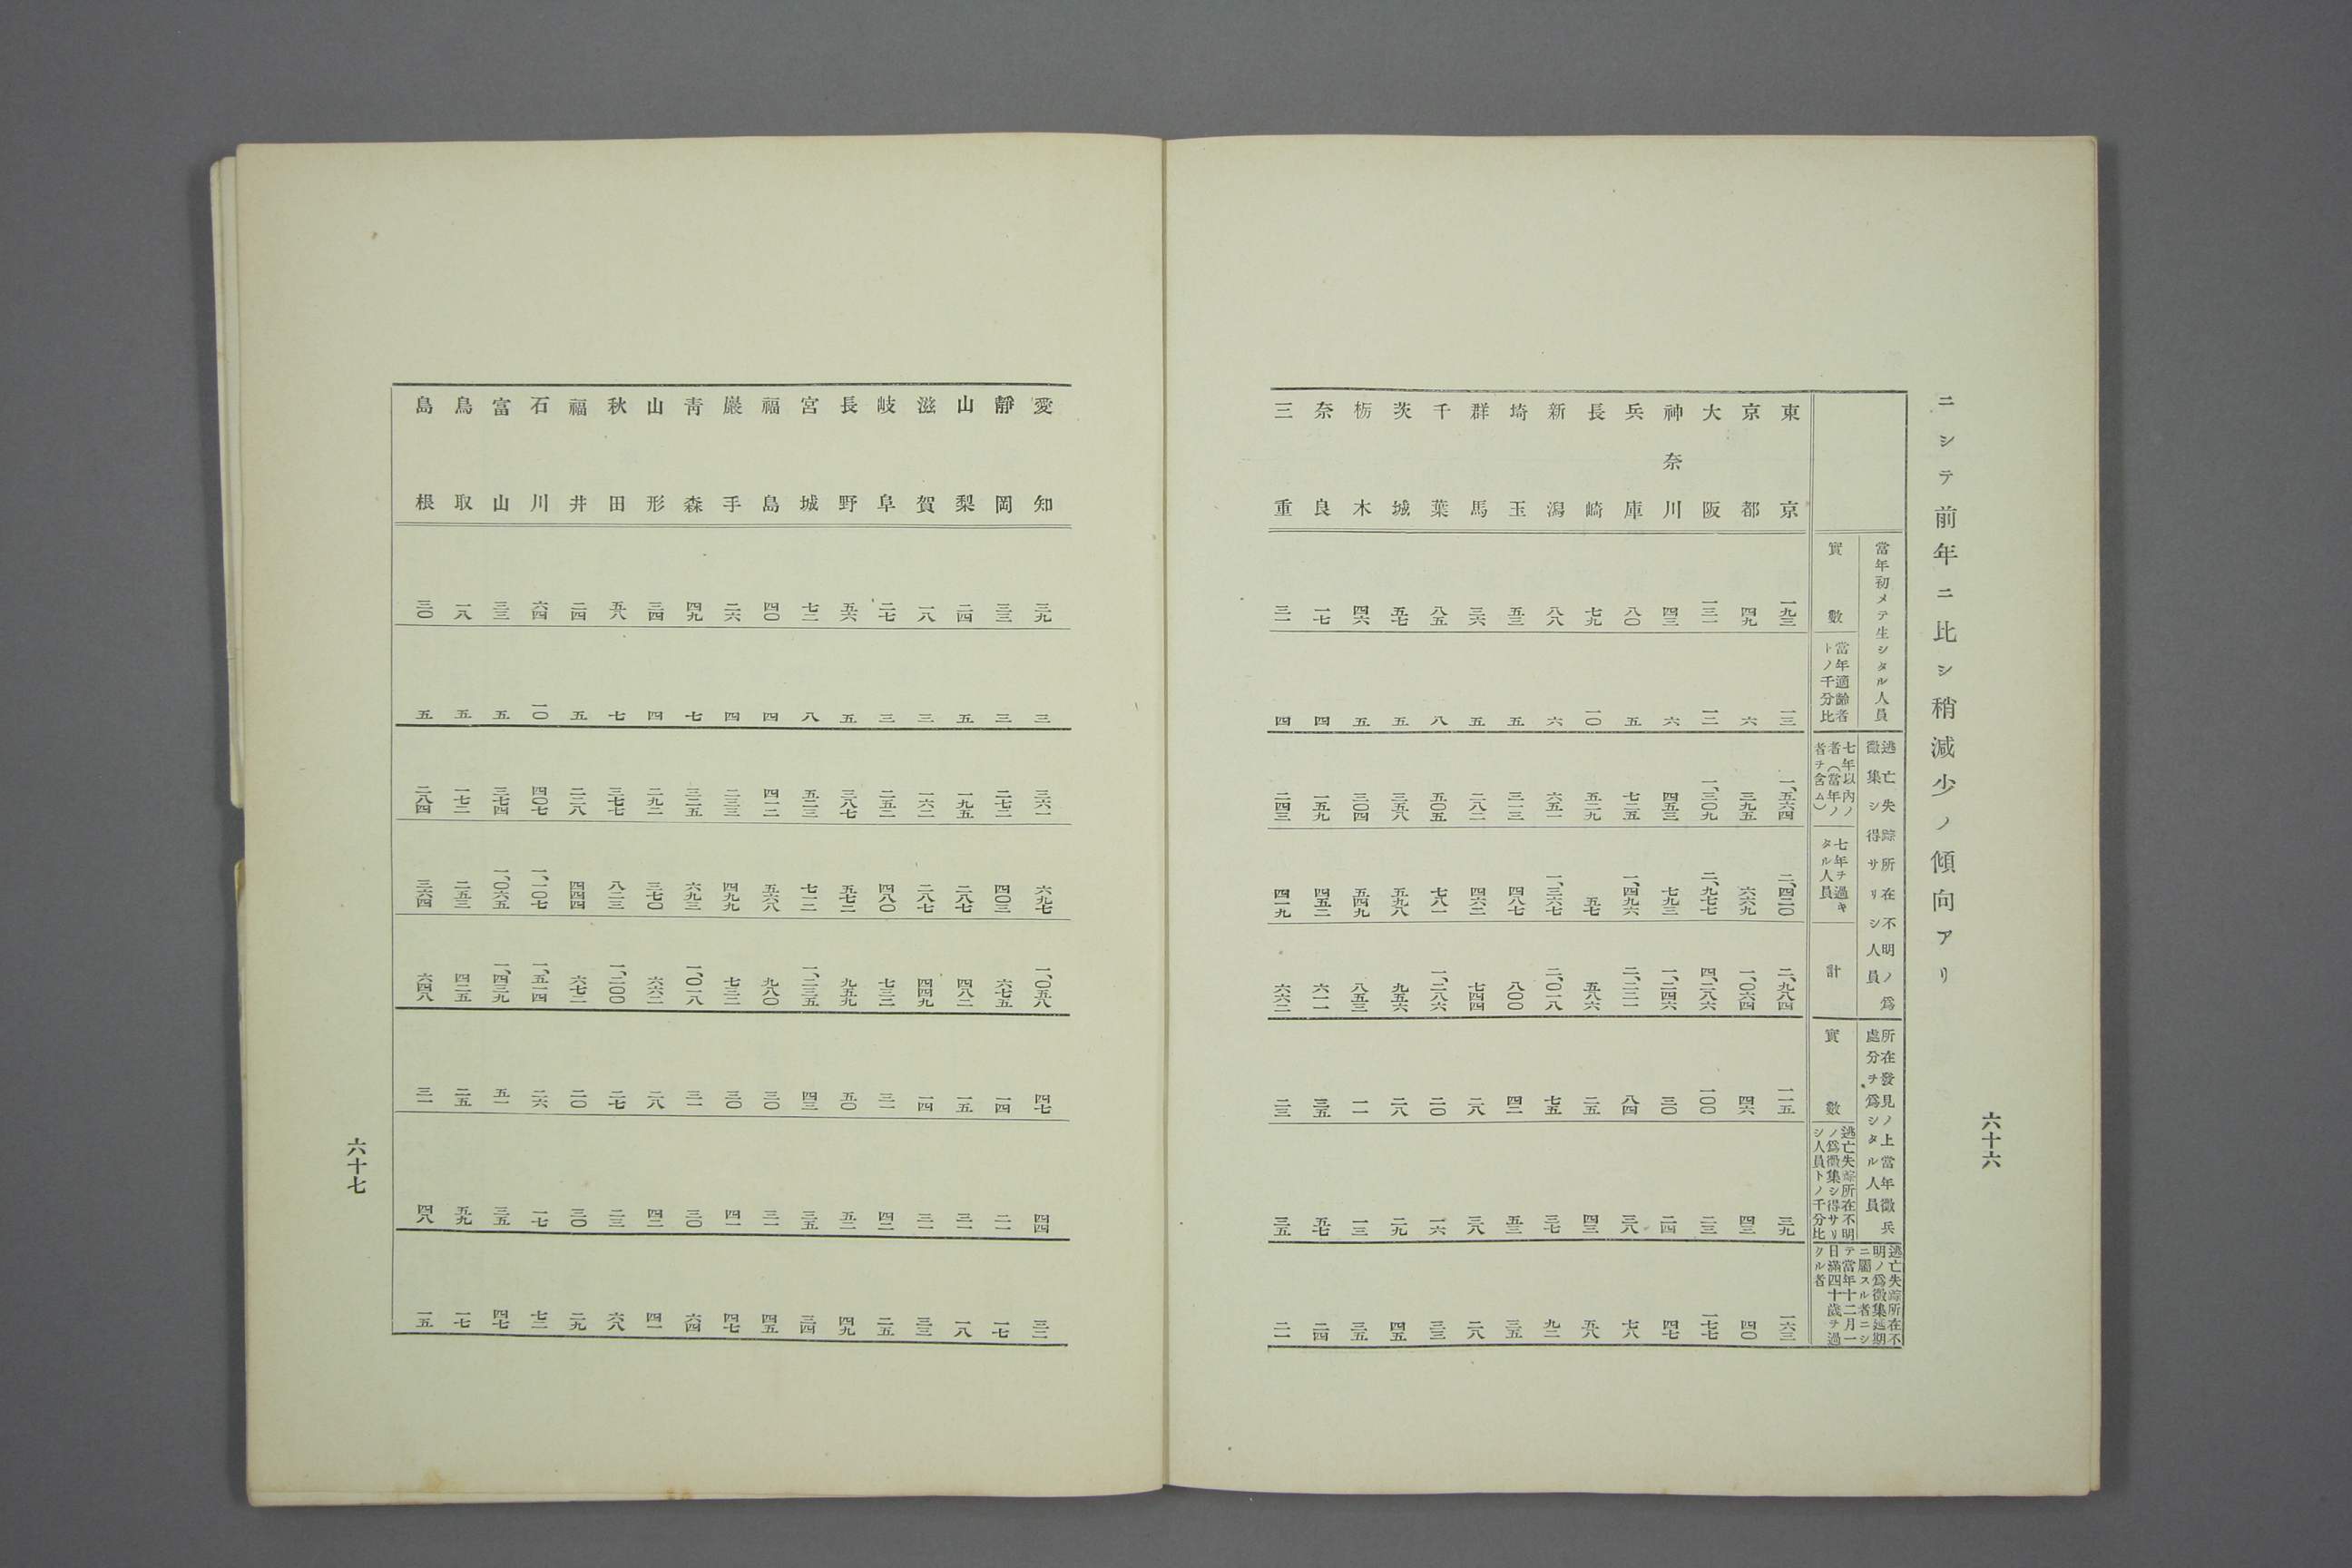 ニシテ前年ニ比シ稍減少ノ傾向アリ
當年初メテ生シタル人員
實數
當年適齡者トノ千分比
逃亡失踪所在不明ノ爲徵集シ得サリシ人員
七年以內ノ者(當年ノ者ヲ含ム)
七年ヲ過キタル人員
計
所在發見ノ上當年徵兵處分ヲ爲シタル人員
實數
逃亡失踪所在不明ノ爲徵集シ得サリシ人員トノ千分比
逃亡失踪所在不明ノ爲徵集延期ニ屬スル者ニシテ當年十二月一日滿四十歲ヲ過クル者
東京 一九三 一三 一、五六四 二、四二〇 二、九八四 一一五 三九 一六三
京都 四九 六 三九五 六六九 一、〇六四 四六 四三 四〇
大阪 一三一 一二 一、三〇九 二、九七七 四、二八六 一〇〇 二三 一七七
神奈川 四三 六 四五三 七九三 一、二四六 三〇 二四 四七
兵庫 八〇 五 七二五 一、四九六 二、二二一 八四 三八 七八
長崎 七九 一〇 五二九 五七 五八六 二五 四三 五八
新潟 八八 六 六五一 一、三六七 二、〇一八 七五 三七 九二
埼玉 五三 五 三一三 四八七 八〇〇 四二 五三 三五
群馬 三六 五 二八二 四六二 七四四 二八 三八 二八
千葉 八五 八 五〇五 七八一 一、二八六 二〇 一六 三三
茨城 五七 五 三五八 五九八 九五六 二八 二九 四五
栃木 四六 五 三〇四 五四九 八五三 一一 一三 三五
奈良 一七 四 一五九 四五二 六一一 三五 五七 二四
三重 三一 四 二四三 四一九 六六二 二三 三五 二一
六十六
愛知 三九 三 三六一 六九七 一、〇五八 四七 四四 三二
靜岡 三三 三 二七二 四〇三 六七五 一四 二一 一七
山梨 二四 五 一九五 二八七 四八二 一五 三一 一八
滋賀 一八 三 一六二 二八七 四四九 一四 三一 三三
岐阜 二七 三 二五二 四八〇 七三二 三一 四二 二五
長野 五六 五 三八七 五七二 九五九 五〇 五二 四九
宮城 七二 八 五二三 七一二 一、二三五 四三 三五 三四
福島 四〇 四 四一二 五六八 九八〇 三〇 三一 四五
巖手 二六 四 二三三 四九九 七三二 三〇 四一 四七
靑森 四九 七 三二五 六九三 一、〇一八 三一 三〇 六四
山形 三四 四 二九二 三七〇 六六二 二八 四二 四一
秋田 五八 七 三七七 八二三 一、二〇〇 二七 二三 六八
福井 二四 五 二二八 四四四 六七二 二〇 三〇 二九
石川 六四 一〇 四〇七 一、一〇七 一、五一四 二六 一七 七二
富山 三三 五 三七四 一、〇六五 一、四三九 五一 三五 四七
鳥取 一八 五 一七二 二五三 四二五 二五 五九 一七
島根 三〇 五 二八四 三六四 六四八 三一 四八 一五
六十七